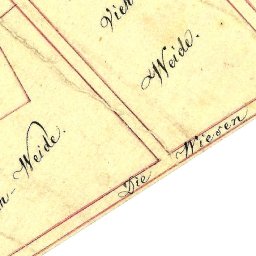 Vieh
Weide.
Weide.
Die Wiesen